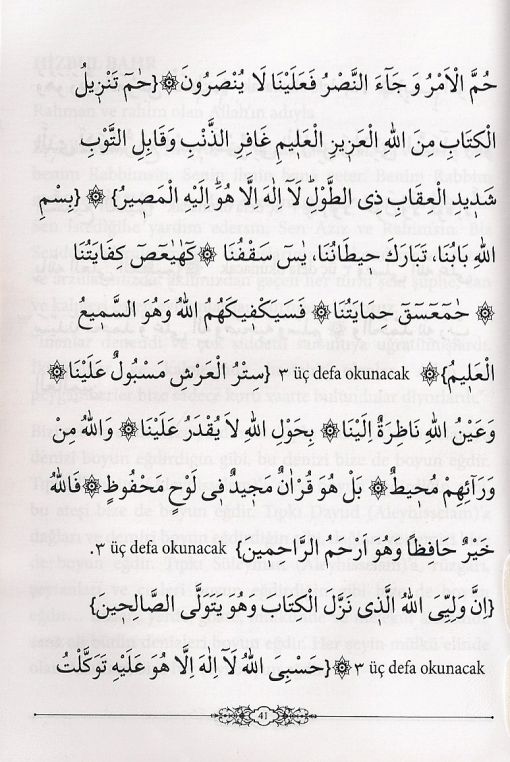 حُمَّ الْاَمْرُ وَ جَٓاءَ النَّصْرُ فَعَلَيْنَا لَا يُنْصَرُونَ۞{حٰمٓ تَنْزٖيلُ
الْكِتَابِ مِنَ اللهِ الْعَزٖيزِ الْعَلٖيمِ غَافِرِ الذَّنْبِ وَقَابِلِ التَّوْبِ
شَدٖيدِ الْعِقَابِ ذِى الطَّوْلِ لَٓا اِلٰهَ اِلَّا هُوَ اِلَيْهِ الْمَصٖيرُ} ۞ {بِسْمِ
اللهِ بَابُنَا، تَبَارَكَ حٖيطَانُنَا، يٰسٓ سَقْفُنَا ۞كٓهٰيٰعٓصٓ كِفَايَتُنَا
۞ حٰمٓعٓسٓقٓ حِمَايَتُنَا۞ فَسَيَكْفٖيكَهُمُ اللهُ وَهُوَ السَّمٖيعُ
الْعَلٖيمُ}۞ ٣ üç defa okunacak {سِتْرُ الْعَرْشِ مَسْبُولٌ عَلَيْنَا۞
وَعَيْنُ اللهِ نَاظِرَةٌ اِلَيْنَا۞ بِحَوْلِ اللهِ لَا يُقْدَرُ عَلَيْنَا۞ وَاللهُ مِنْ
وَرَٓائِهِمْ مُحٖيطٌ۞ بَلْ هُوَ قُرْاٰنٌ مَجٖيدٌ فٖى لَوْحٍ مَحْفُوظٍ۞فَاللهُ
خَيْرٌ حَافِظاً وَهُوَ اَرْحَمُ الرَّاحِمٖينَ} ٣ üç defa okunacak.
{اِنَّ وَلِيِّىَ اللهُ الَّذٖى نَزَّلَ الْكِتَابَ وَهُوَ يَتَوَلَّى الصَّالِحٖينَ}
٣ üç defa okunacak ۞{حَسْبِىَ اللهُ لَٓا اِلٰهَ اِلَّا هُوَ عَلَيْهِ تَوَكَّلْتُ
41